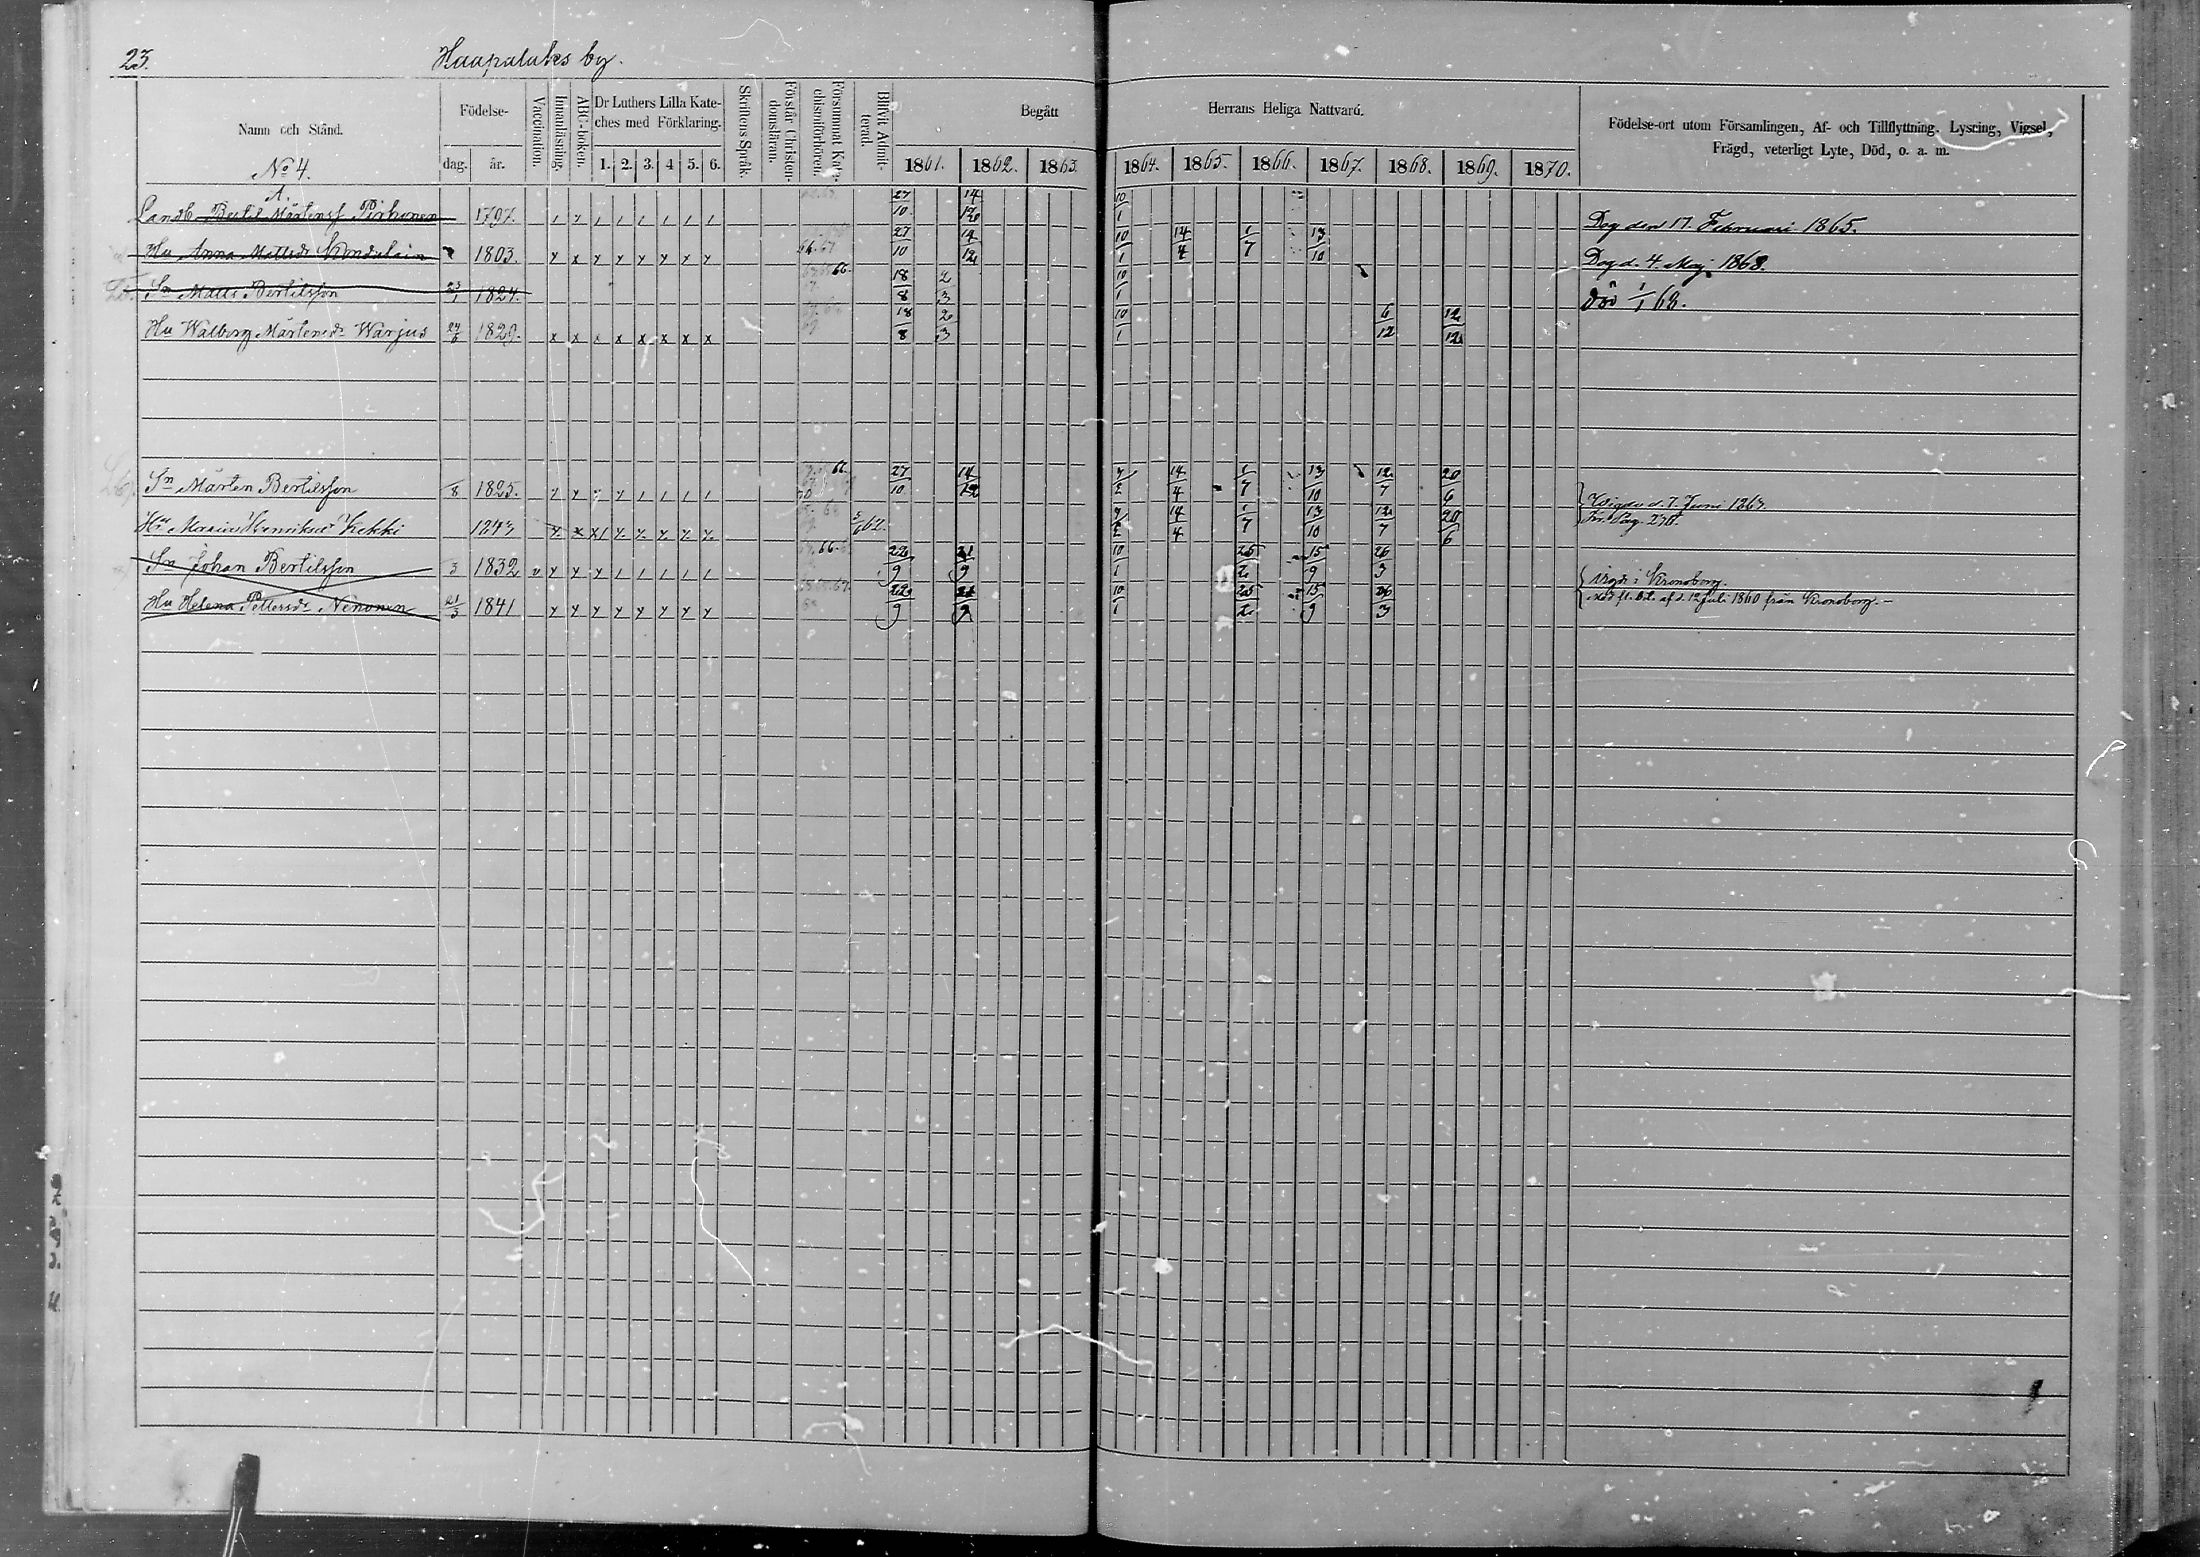 23. Haapalaks by.
Namn och Stånd. Födelse- dag. år. Vaccination. Innanläsning. ABC-boken. Dr Luthers Lilla Kateches med Förklaring. 1. 2. 3. 4 5. 6. Skriftens Språk. Förstår Christendomsläran. Försummat Katechismiförhören. Blifvit Admitterad. Begått Herrans Heliga Nattvard. 1861. 1862. 1863. 1864. 1865. 1866. 1867. 1868. 1869. 1870. Födelse-ort utom Församlingen, Af- och Tillflyttning. Lysning, Vigsel, Frägd, veterligt Lyte, Död, o. a. m.
No 4.
A.
Landb Bertil Mårtenss Pirhonen 1797. 27/10 14/12 10/1 Dog den 17 Februari 1865.
Hu Anna Mattsdr 1803. 27/10 14/12 10/1 14/4 1/7 13/10 Dog d. 4. Maj 1868.
Sn Matts Bertilsson 23/1 1824. 18/8 2/3 10/1 död 1/1 68.
Hu Walborg Mårtensdr Warjus 24/6 1829. 18/8 2/3 10/1 6/12 12/12
Sn Mårten Bertilsson /8 1825. 27/10 14/12 7/2 14/4 1/7 13/10 12/7 20/6 Vigde d. 7. Juni 1863.
Hu Maria Henriksdr Kekki 1843 62. 7/2 14/4 1/7 13/10 12/7 20/6 Fr. Pag. 270.
Sn Johan Bertilsson 3 1832 v 22/9 21/9 10/1 25/2 15/9 26/3 vigde i Kronoborg.
Hu Helena Pettersdr Nenonen 21/3 1841 22/9 21/9 10/1 25/2 15/9 26/3 med fl. bet. af d. 12 Juli 1860 från Kronoborg.